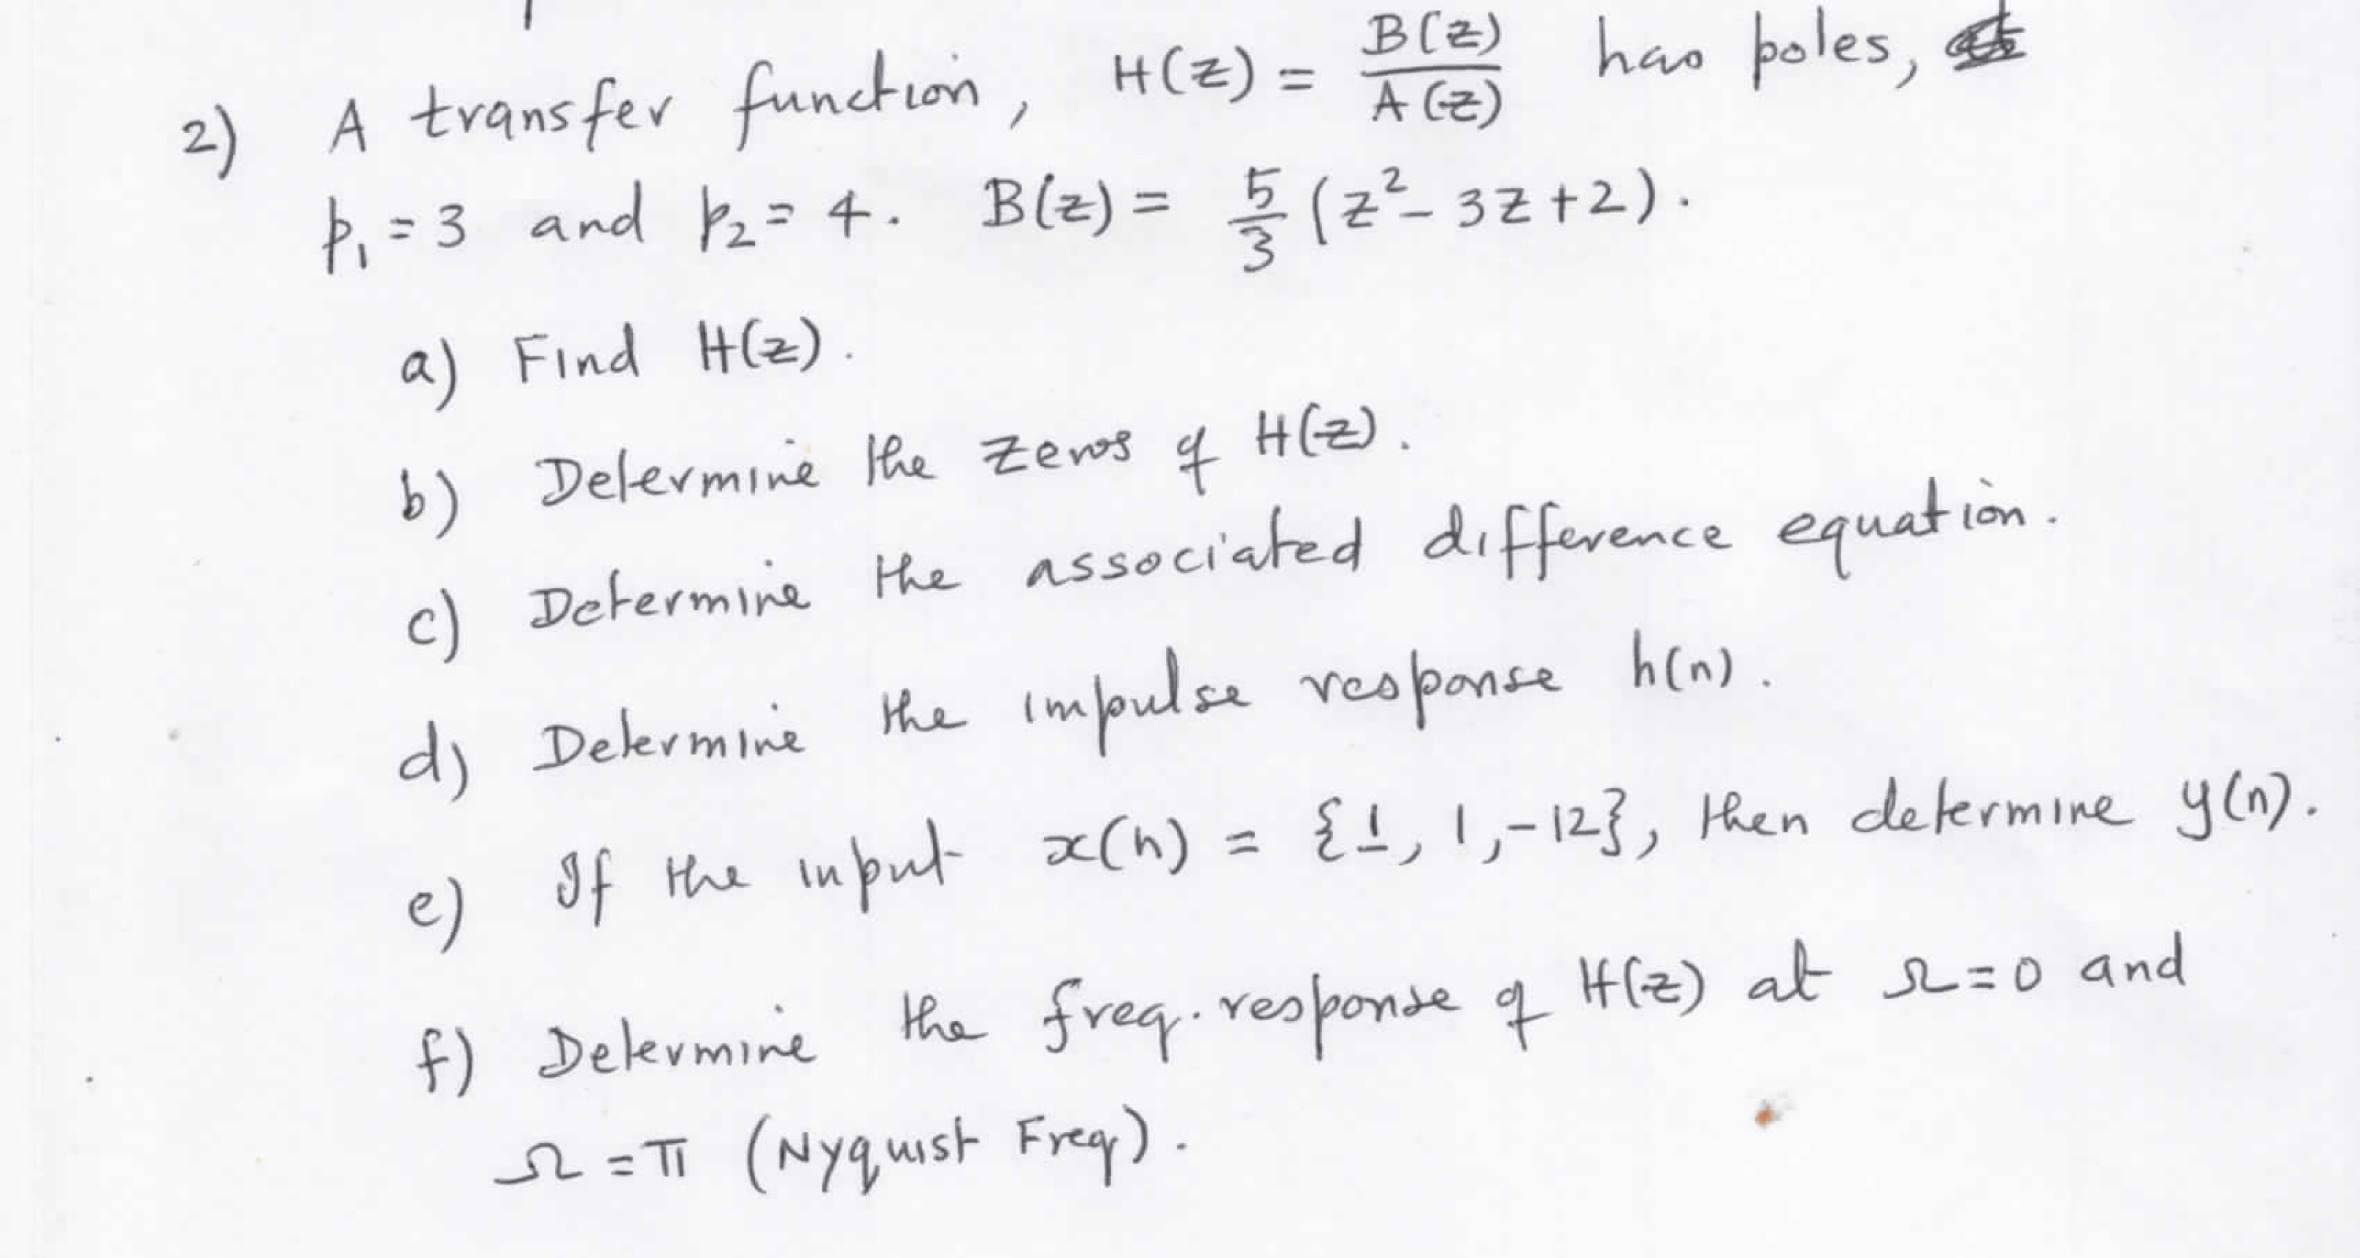 2) A transfer function, H(z) = B(z)/A(z) has poles,
p₁ = 3 and p₂ = 4. B(z) = 5/3 (z² - 3z + 2).
a) Find H(z).
b) Determine the zeros of H(z).
c) Determine the associated difference equation.
d) Determine the impulse response h(n).
e) If the input x(n) = {1̲, 1, -12}, then determine y(n).
f) Determine the freq. response of H(z) at Ω = 0 and
Ω = π (Nyquist Freq).